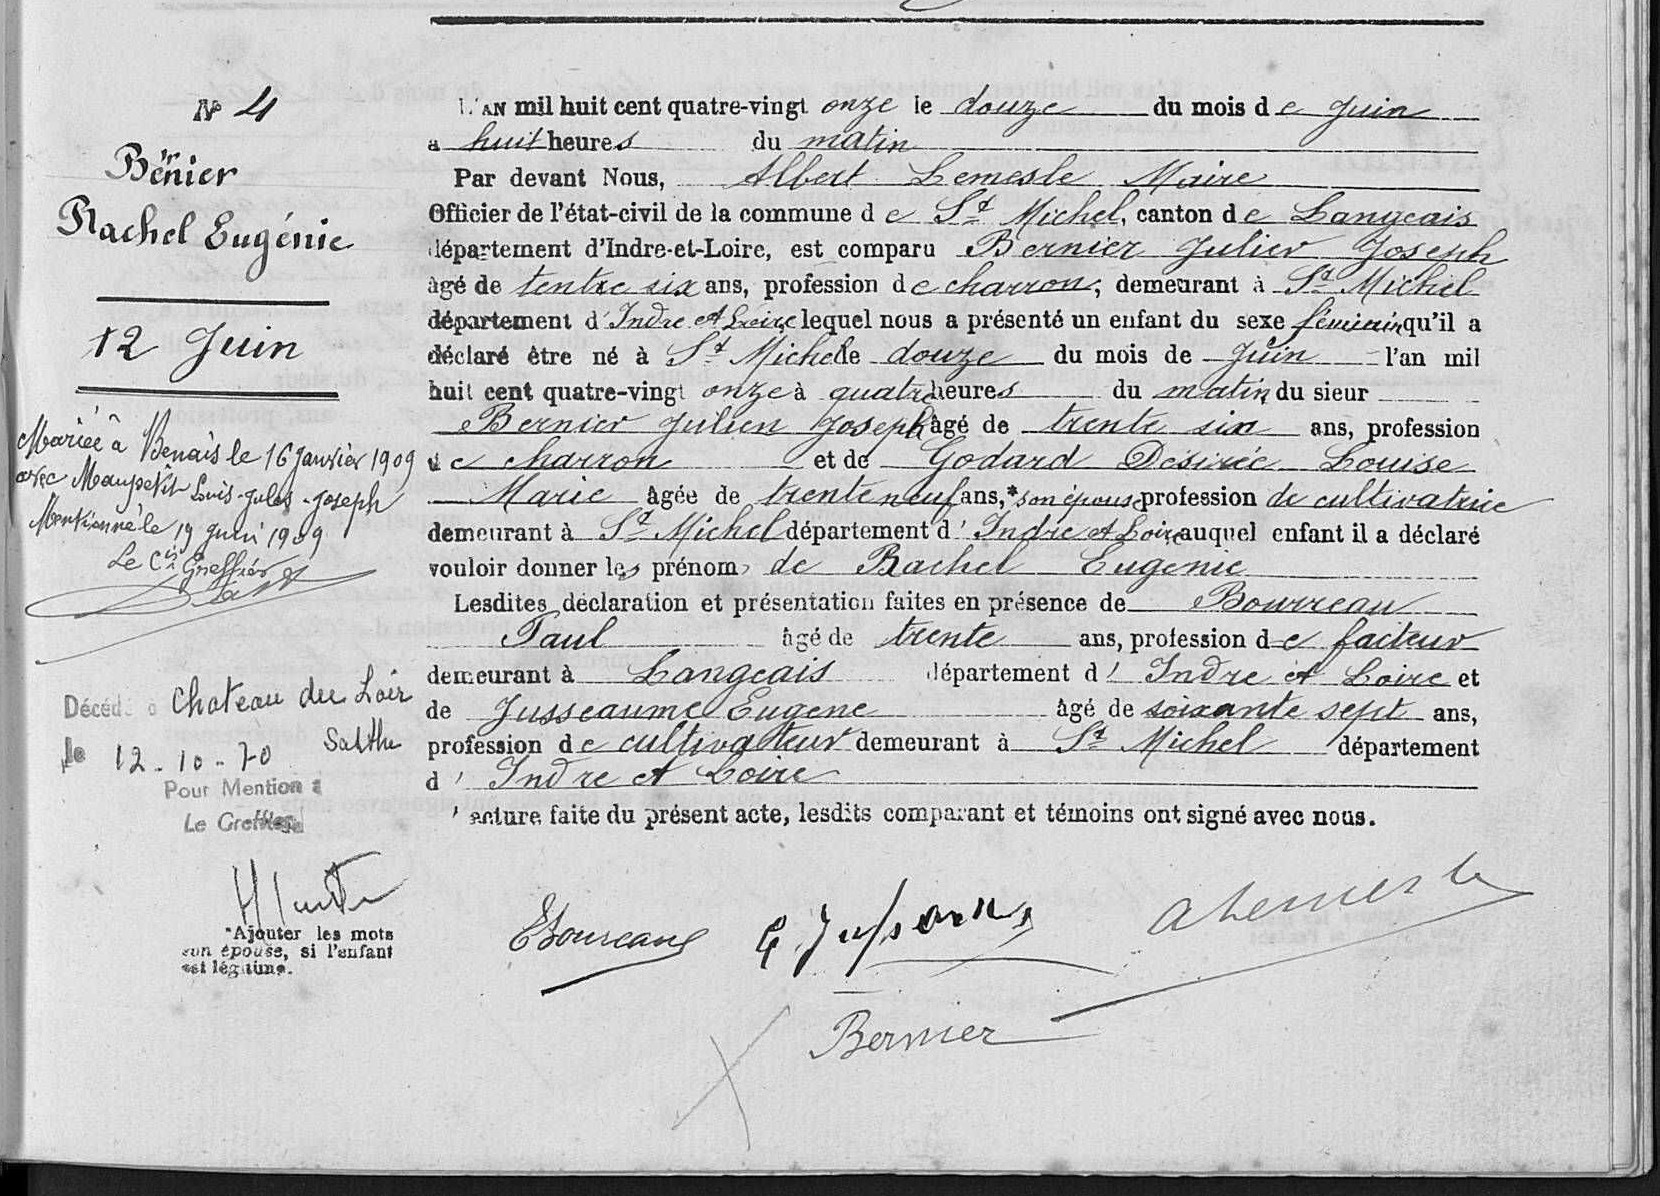 N° 4
Bernier
Rachel Eugénie
12 Juin
Mariée à Benais le 16 Janvier 1909
avec Maupetit Louis-Jules-Joseph
Mentionné le 19 Juin 1909
Le Cis Greffier
Décédé à Chateau du Loir
Sarthe
le 12-10-70
Pour Mention
Le Greffier
*Ajouter les mots
son épouse, si l'enfant
est légitime.
L'AN mil huit cent quatre-vingt onze le douze du mois de Juin
à huit heures du matin
Par devant Nous, Albert Lemesle Maire
Officier de l'état-civil de la commune de St Michel, canton de Langeais
département d'Indre-et-Loire, est comparu Bernier Julien Joseph
âgé de tentre six ans, profession de charron, demeurant à St Michel
département d'Indre et Loire lequel nous a présenté un enfant du sexe féminin qu'il a
déclaré être né à St Michel le douze du mois de Juin l'an mil
huit cent quatre-vingt onze à quatre heures du matin, du sieur
Bernier Julien Joseph âgé de trente six ans, profession
de charron et de Godard Désirée Louise
Marie âgée de trente neuf ans,* son épouse profession de cultivatrice
demeurant à St Michel département d'Indre et Loire auquel enfant il a déclaré
vouloir donner les prénoms de Rachel Eugénie
Lesdites déclaration et présentation faites en présence de Bourreau
Paul âgé de trente ans, profession de facteur
demeurant à Langeais département d'Indre et Loire et
de Jusseaume Eugene âgé de soixante sept ans,
profession de cultivateur demeurant à St Michel département
d'Indre et Loire
Lecture faite du présent acte, lesdits comparant et témoins ont signé avec nous.
Bourreau
ALemesle
Bernier